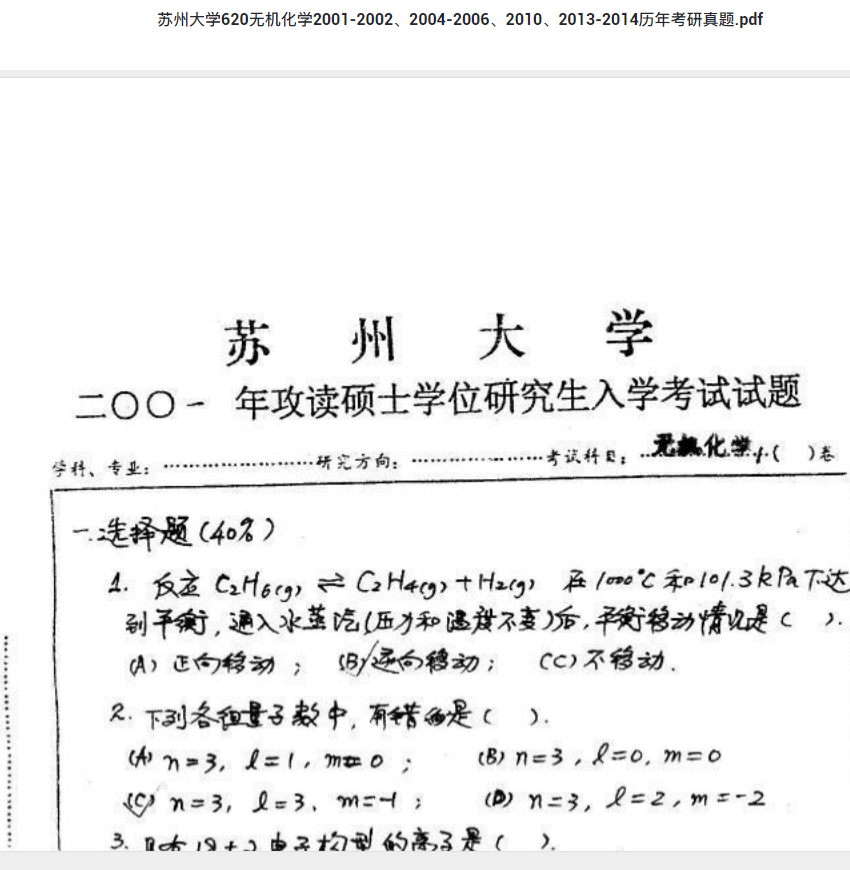 苏州大学620无机化学2001-2002、2004-2006、2010、2013-2014历年考研真题.pdf
苏 州 大 学
二〇〇一 年攻读硕士学位研究生入学考试试题
学科、专业：……………………研究方向：…………………考试科目：…无机化学…( )卷
一.选择题(40%)
1. 反应 C2H6(g) ⇌ C2H4(g) + H2(g) 在1000°C和101.3kPa下达
到平衡，通入水蒸汽(压力和温度不变)后，平衡移动情况是( ).
(A) 正向移动； (B) 逆向移动； (C) 不移动.
2. 下列各组量子数中，有错的是( ).
(A) n=3, l=1, m=0 ; (B) n=3, l=0, m=0
(C) n=3, l=3, m=-1 ; (D) n=3, l=2, m=-2
3. 具有18+2电子构型的离子是( ).